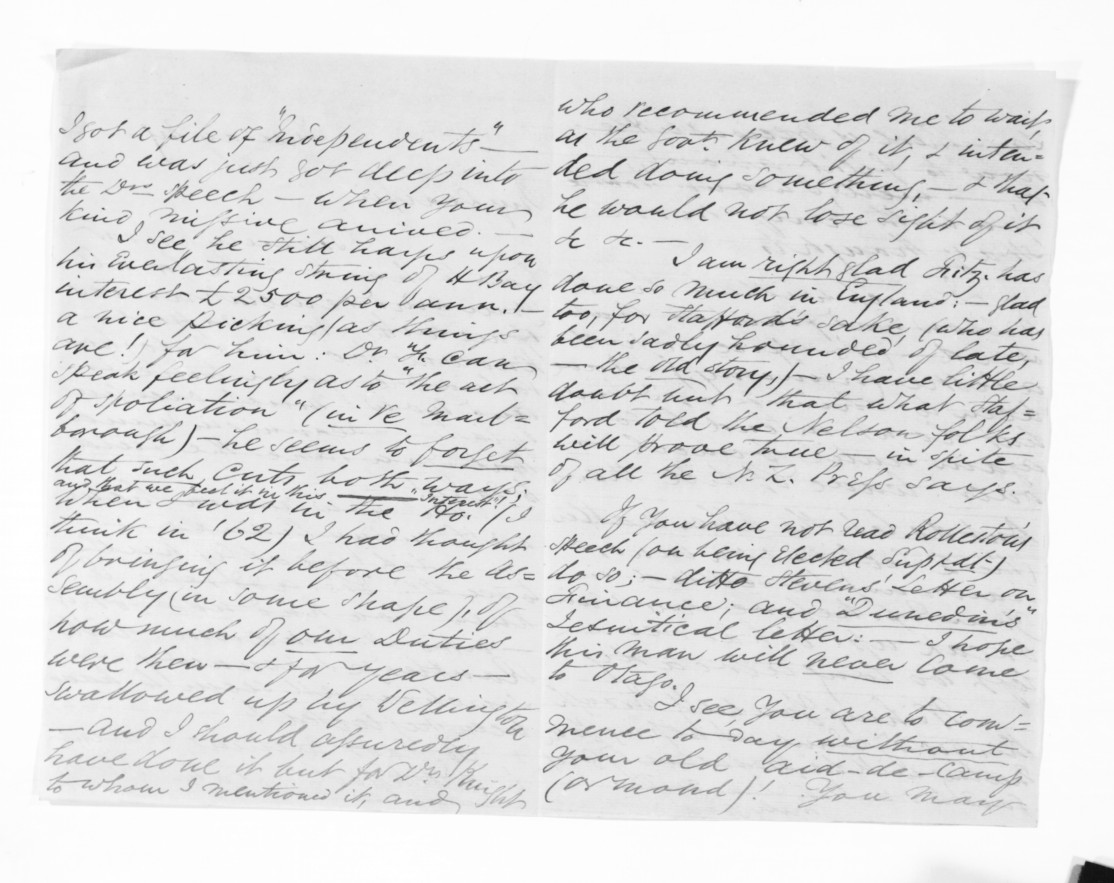 I got a file of "Independents" —
and was just got deep into
the Drs speech — when your
kind missive arrived. —
I see he still harps upon
his Everlasting string of H Bay
interest £2500 per ann. ! —
a nice picking (as things
are!) for him: Dr. F. can
speak feelingly as to "the act
of spoliation" (in re Marl=
borough) — he seems to forget
that such cuts both ways;
and that we feel it in this "Interest"!
When I was in the Ho. (I
think in '62) I had thought
of bringing it before the As=
sembly (in some shape), of
how much of our Duties
were then — & for years —
swallowed up by Wellington
— and I should assuredly
have done it but for Dr. Knight
to whom I mentioned it, and
who recommended me to wait,
as the Govt. knew of it, & inten=
ded doing something, — & that
he would not lose sight of it
&c &c. —
I am right glad Fitz. has
done so much in England: — glad
too, for Stafford's sake, (who has
been sadly hounded of late,
— the old story,) — I have little
doubt but that what Staf=
ford told the Nelson folks
will prove true — in spite
of all the N.Z. Press says.
If you have not read Rolleston's
speech (on being elected Suptdt.)
do so; — ditto Stevens' Letter on
Finance; and "Dunedin's"
Jesuitical letter: — I hope
this man will never come
to Otago.
I see, You are to com=
mence to day without
your old aid-de-camp
(Ormond)! You may